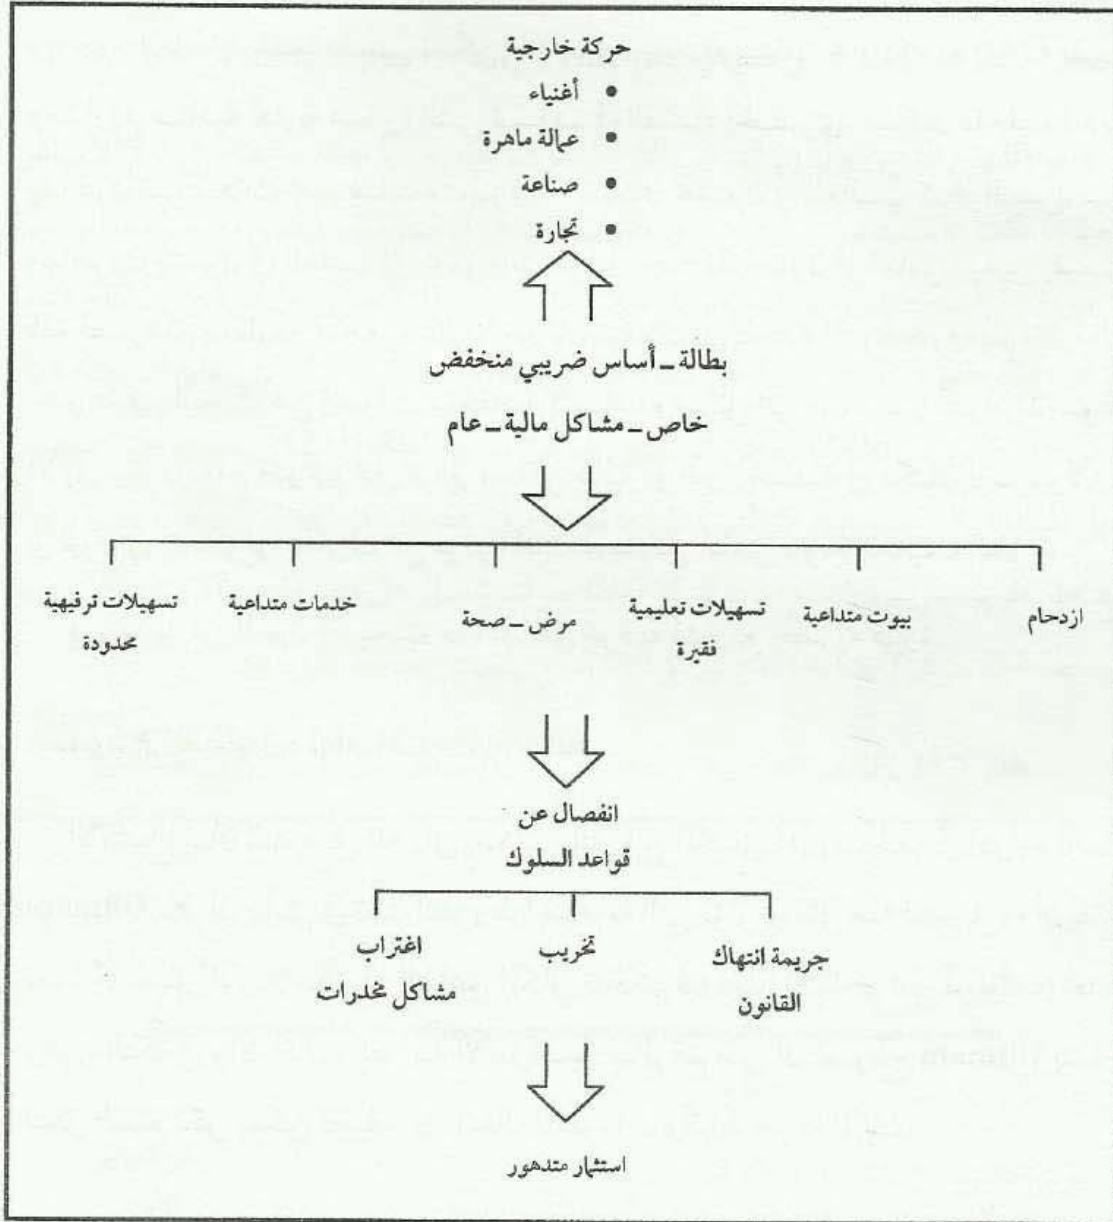 حركة خارجية
• أغنياء
• عمالة ماهرة
• صناعة
• تجارة
بطالة ــ أساس ضريبي منخفض
خاص ــ مشاكل مالية ــ عام
ازدحام
بيوت متداعية
تسهيلات تعليمية
فقيرة
مرض ــ صحة
خدمات متداعية
تسهيلات ترفيهية
محدودة
انفصال عن
قواعد السلوك
جريمة انتهاك
القانون
تخريب
اغتراب
مشاكل مخدرات
استثمار متدهور